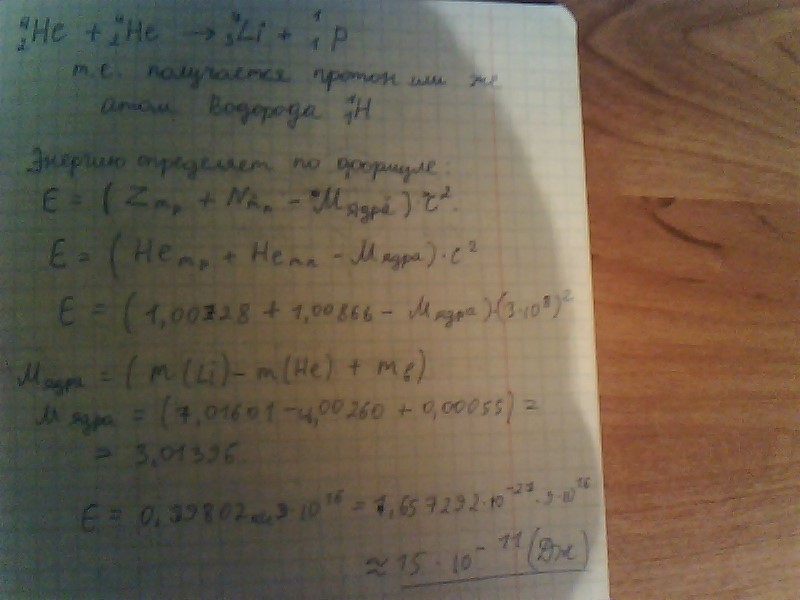 ⁴₂He + ⁴₂He → ⁷₃Li + ¹₁p
т.е. получается протон или же
атом водорода ¹₁H
Энергию определяет по формуле:
E = (Zmₚ + Nmₙ - Mядра) c².
E = (Hemₚ + Hemₙ - Mядра)·c²
E = (1,00728 + 1,00866 - Mядра)·(3·10⁸)²
Mядра = (m(Li) - m(He) + mₑ)
Mядра = (7,01601 - 4,00260 + 0,00055) =
= 3,01396.
E = 0,99802 · 9·10¹⁶ = 1,657292·10⁻²⁷·9·10¹⁶
≈ 15·10⁻¹¹ (Дж)